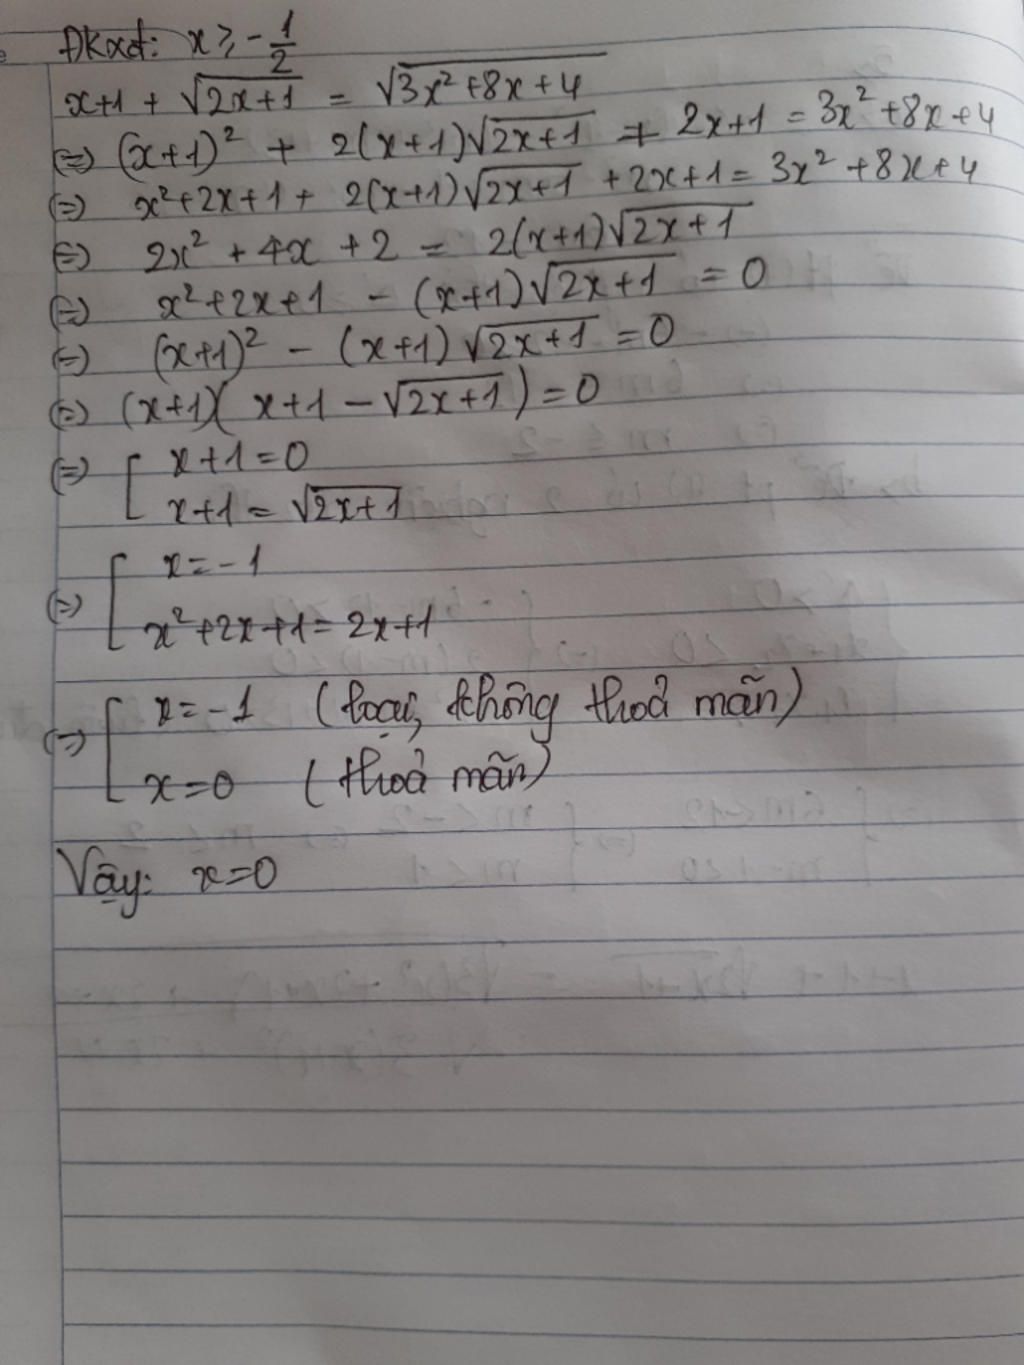 ĐKxđ: x ≥ -1/2
x+1 + √(2x+1) = √(3x²+8x+4)
(=) (x+1)² + 2(x+1)√(2x+1) + 2x+1 = 3x²+8x+4
(=) x²+2x+1 + 2(x+1)√(2x+1) +2x+1 = 3x² +8x+4
(=) 2x² + 4x + 2 = 2(x+1)√(2x+1)
(=) x²+2x+1 - (x+1)√(2x+1) = 0
(=) (x+1)² - (x+1)√(2x+1) = 0
(=) (x+1)(x+1-√(2x+1)) = 0
(=) [ x+1=0
x+1 = √(2x+1)
(=) [ x=-1
x²+2x+1 = 2x+1
(=) [ x=-1 (loại, không thoả mãn)
x=0 (thoả mãn)
Vậy: x=0